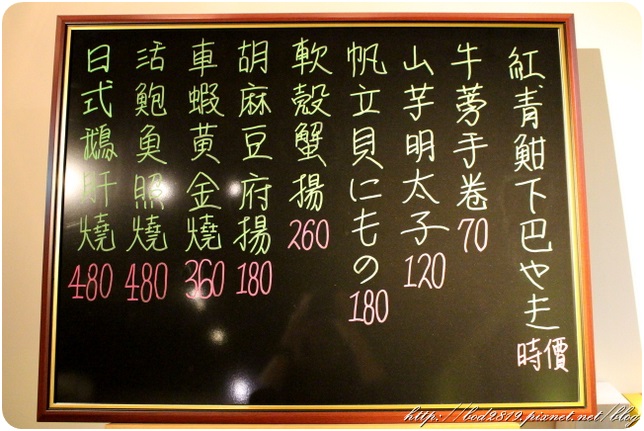 紅青魽下巴やき時價
牛蒡手卷70
山芋明太子120
帆立貝にもの180
軟殼蟹揚260
胡麻豆府揚180
車蝦黃金燒360
活鮑魚照燒480
日式鵝肝燒480
http://bod2819.pixnet.net/blog